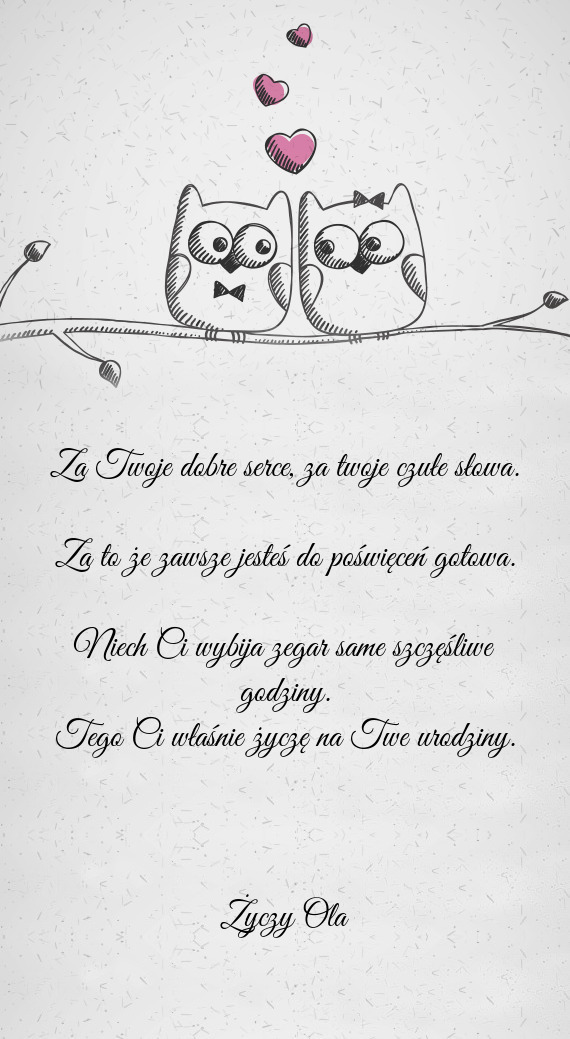 Za Twoje dobre serce, za twoje czułe słowa.
Za to że zawsze jesteś do poświęceń gotowa.
Niech Ci wybija zegar same szczęśliwe
godziny.
Tego Ci właśnie życzę na Twe urodziny.
Życzy Ola